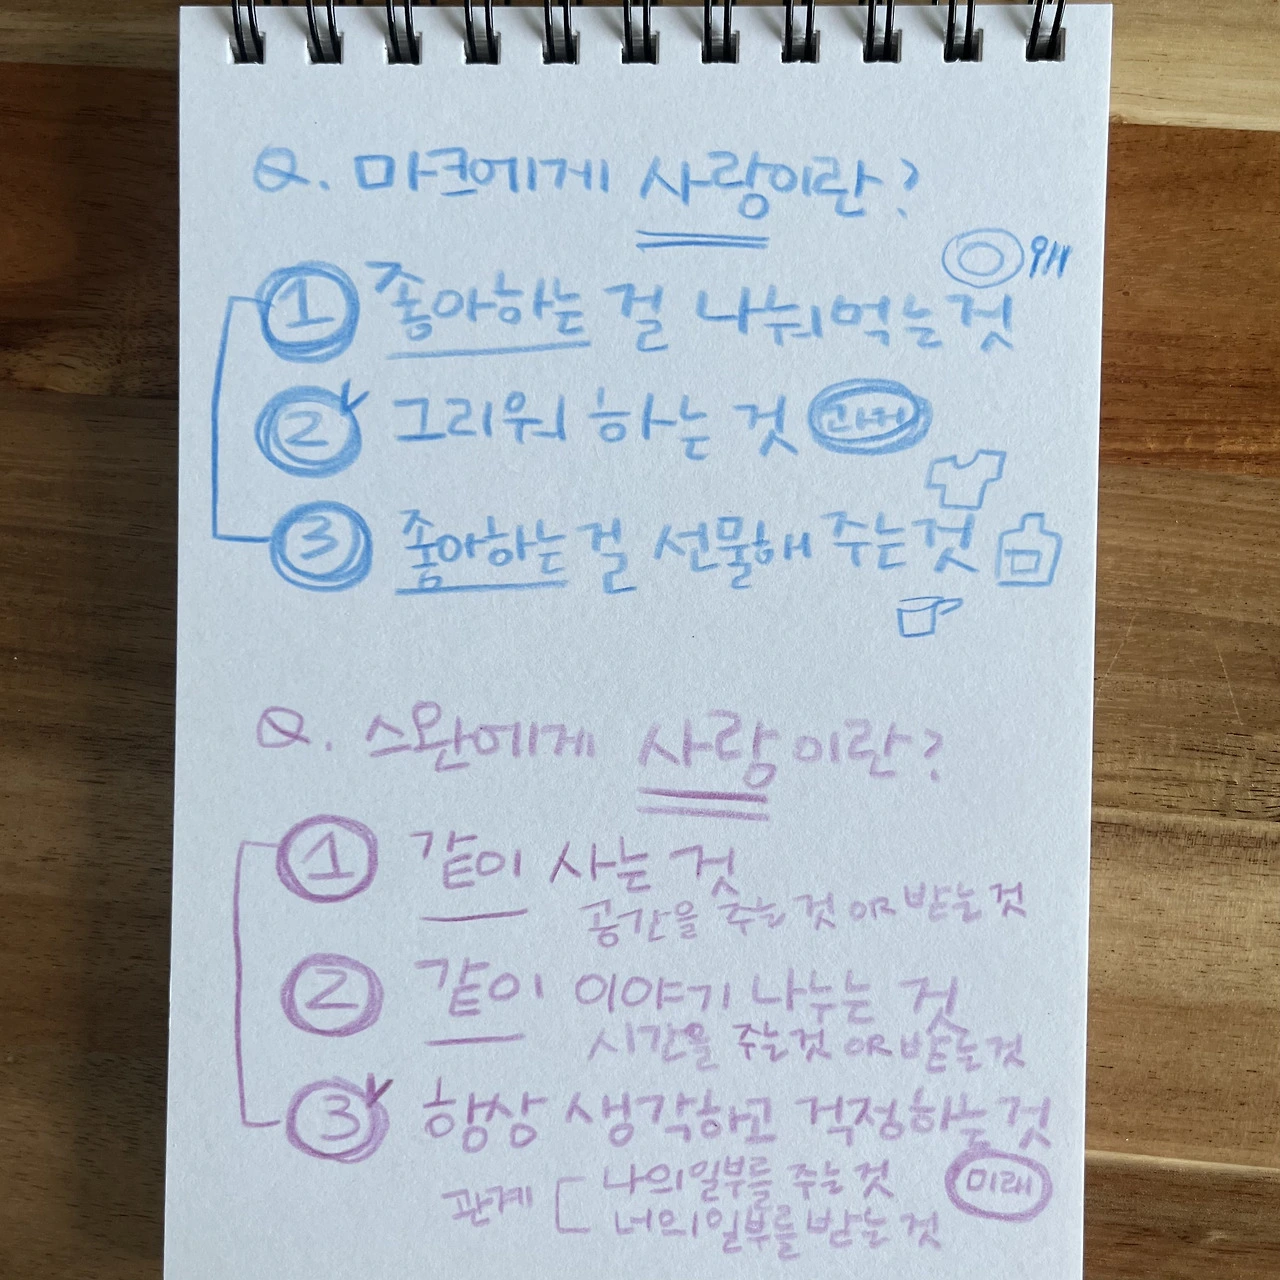 Q. 마크에게 사랑이란?
1 좋아하는 걸 나눠먹는 것
2 그리워 하는 것 과거
3 좋아하는 걸 선물해 주는 것
Q. 스완에게 사랑이란?
1 같이 사는 것
공간을 주는 것 OR 받는 것
2 같이 이야기 나누는 것
시간을 주는 것 OR 받는 것
3 항상 생각하고 걱정하는 것
미래
관계 나의 일부를 주는 것
너의 일부를 받는 것